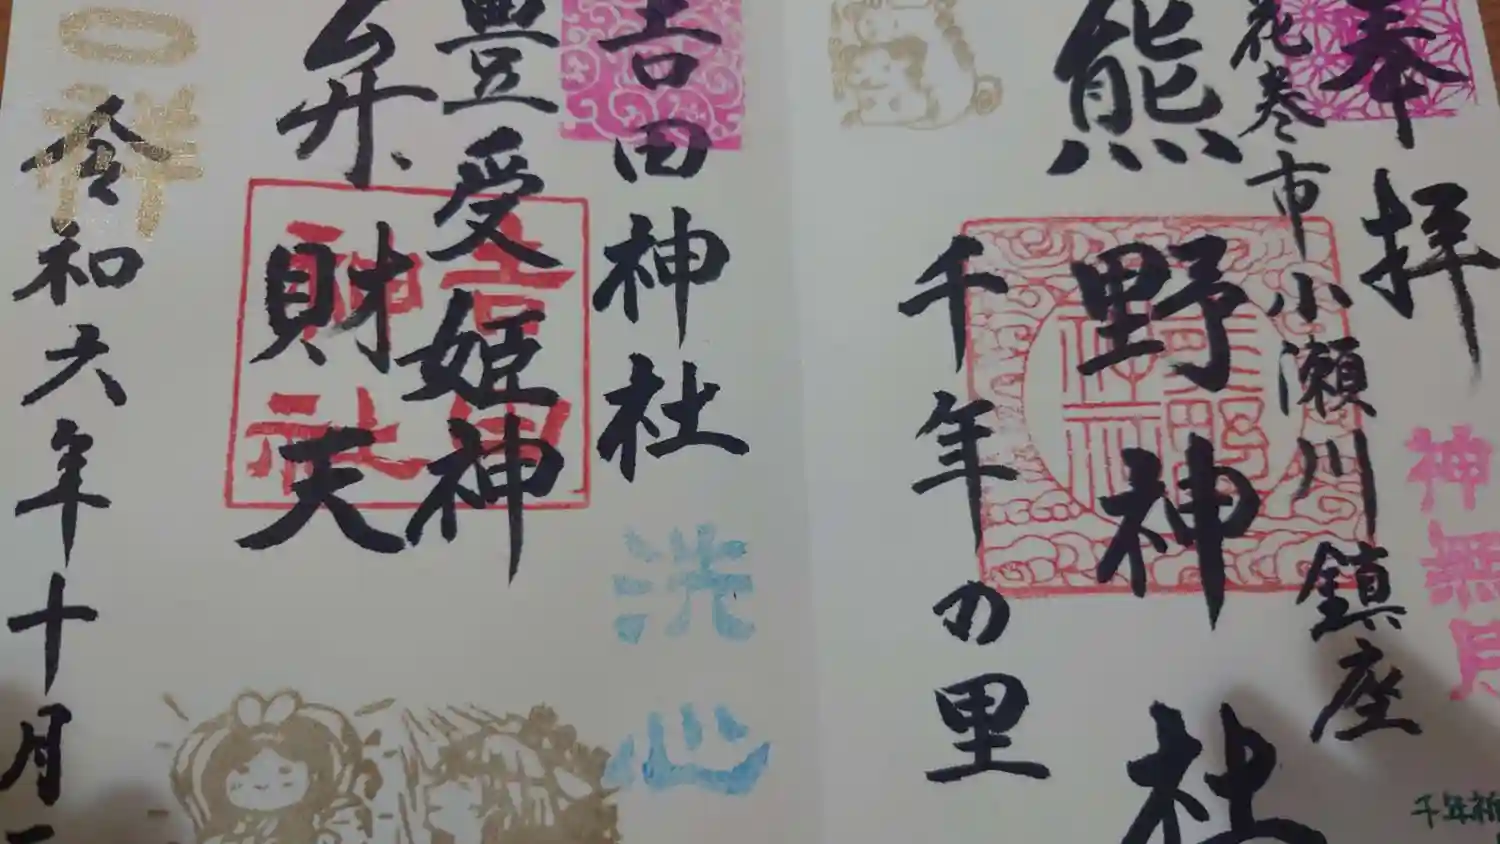 奉拝
花巻市小瀬川鎮座
神無月
熊野神社
熊野神社
千年の里
千年祈
吉田神社
洗心
豊受姫神
弁財天
吉田神社
令和六年十月